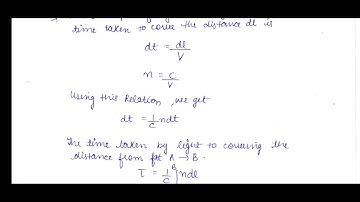 time taken to cover the distance dl is
dt = dl/V
n = c/V
Using this Relation, we get
dt = 1/c ndt
The time taken by light to covering the
distance from pt A → B.
T = 1/c ∫ᴮ ndl